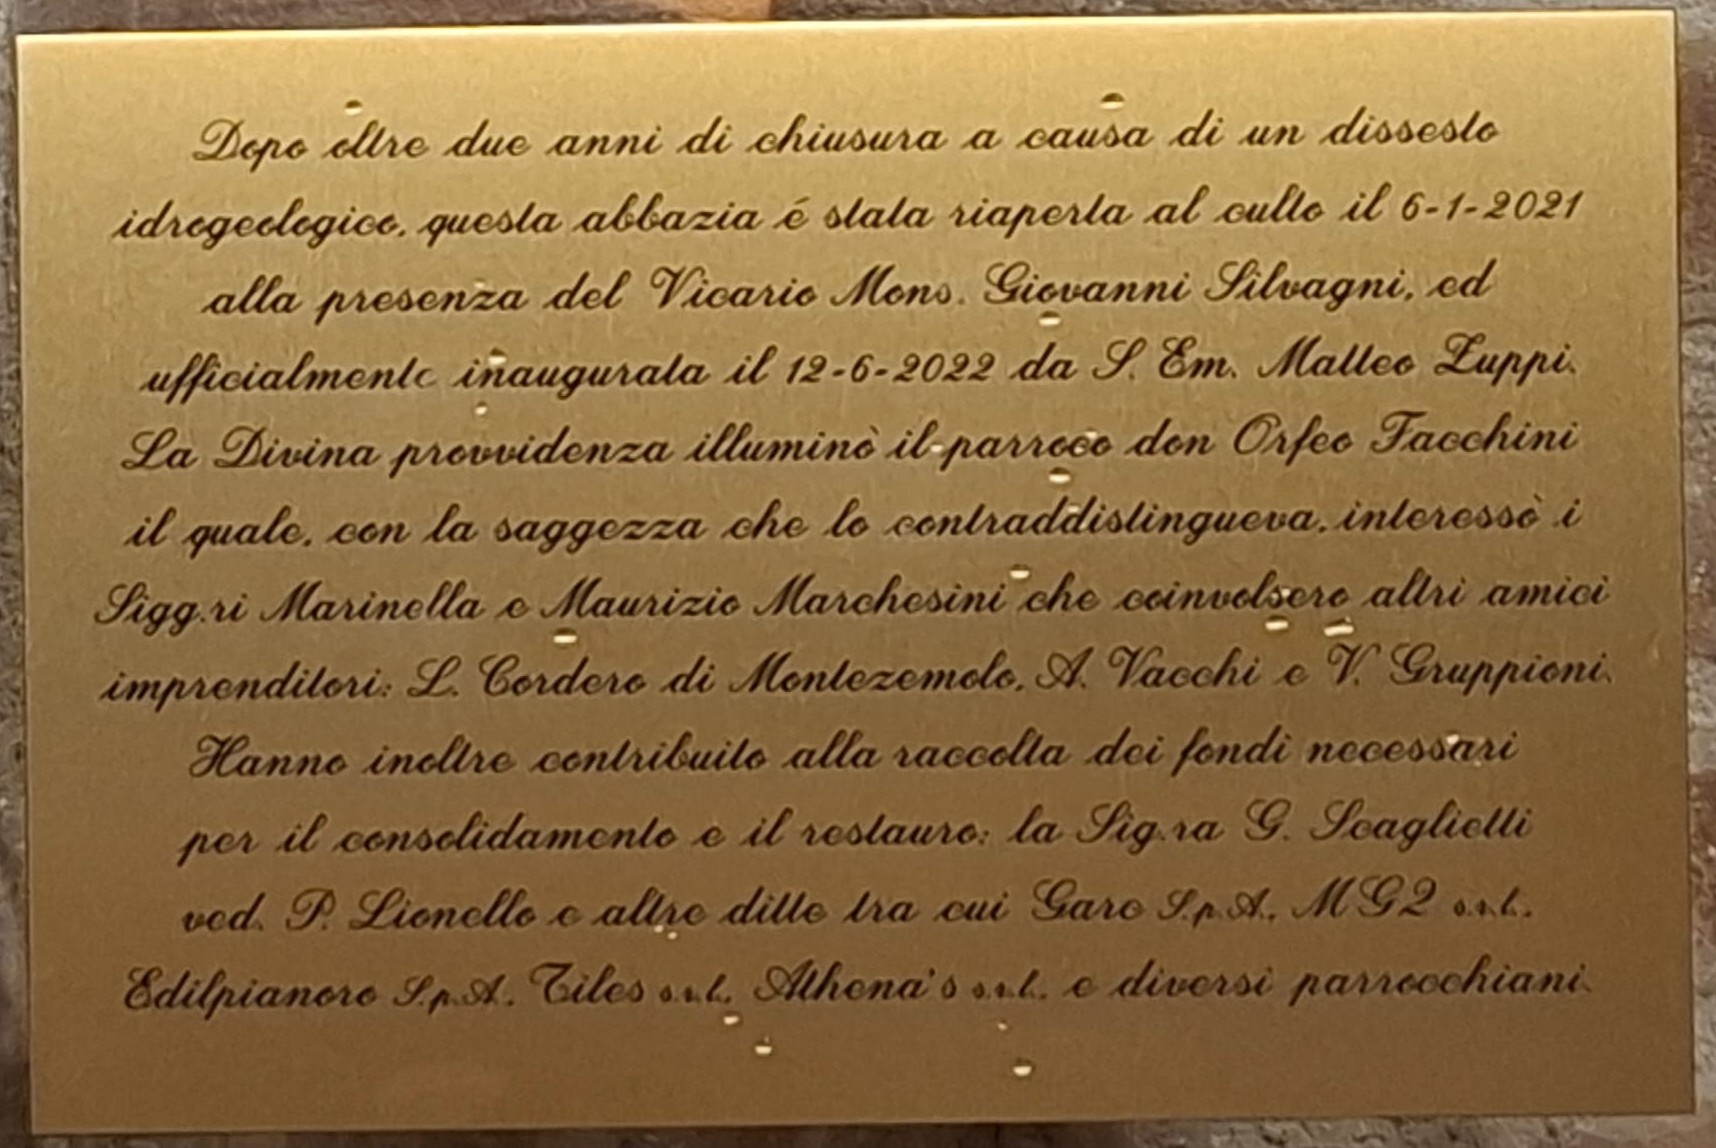 Dopo oltre due anni di chiusura a causa di un dissesto
idrogeologico, questa abbazia é stata riaperta al culto il 6-1-2021
alla presenza del Vicario Mons. Giovanni Silvagni, ed
ufficialmente inaugurata il 12-6-2022 da S. Em. Matteo Zuppi.
La Divina provvidenza illuminò il parroco don Orfeo Facchini
il quale, con la saggezza che lo contraddistingueva, interessò i
Sigg.ri Marinella e Maurizio Marchesini che coinvolsero altri amici
imprenditori: L. Cordero di Montezemolo, A. Vacchi e V. Gruppioni.
Hanno inoltre contribuito alla raccolta dei fondi necessari
per il consolidamento e il restauro: la Sig.ra G. Scaglietti
ved. P. Lionello e altre ditte tra cui Garc S.p.A., MG2 s.r.l.,
Edilpianoro S.p.A., Tiles s.r.l., Athena's s.r.l. e diversi parrocchiani.